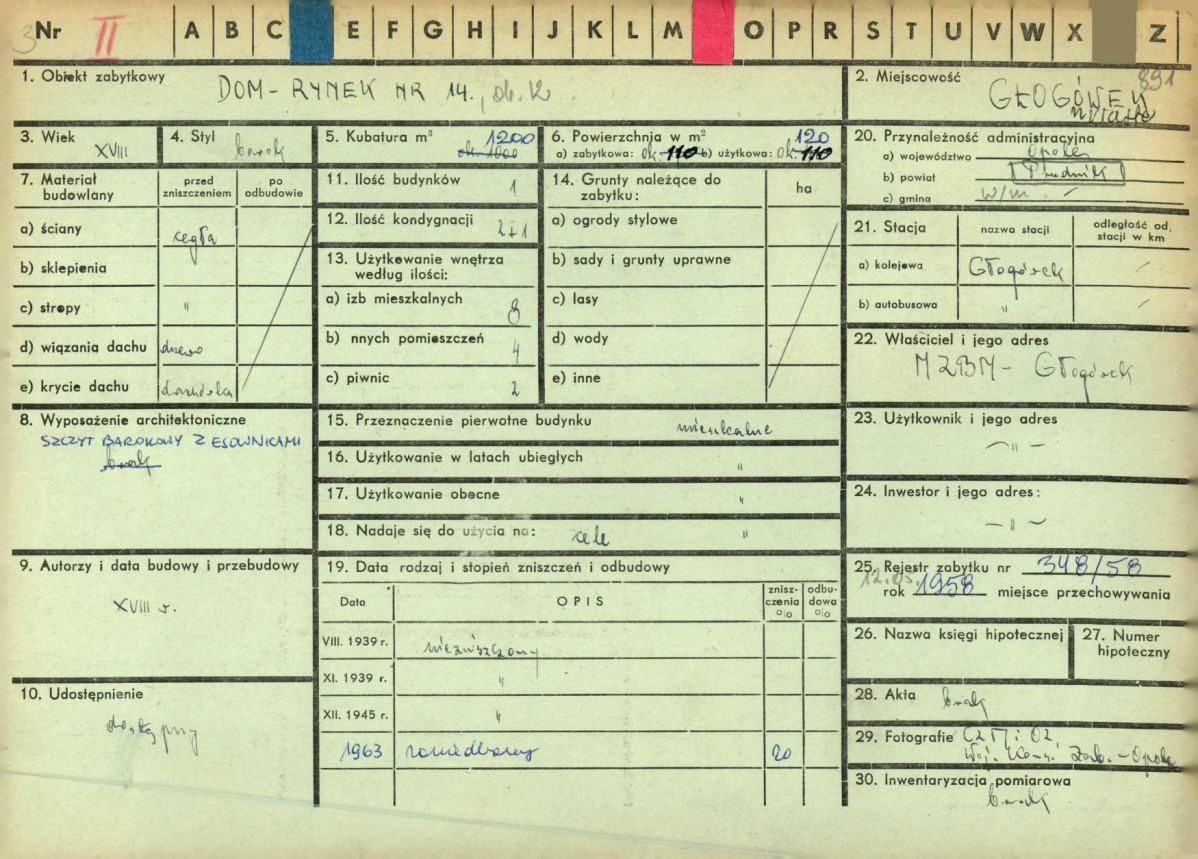 3 Nr II A B C E F G H I J K L M O P R S T U V W X Z
1. Obiekt zabytkowy
DOM - RYNEK NR 14., ob. 12
2. Miejscowość 891
GŁOGÓWEK
miasto
3. Wiek
XVIII
4. Styl
barok
5. Kubatura m³ 1200
ok. 1000
6. Powierzchnia w m² 120
a) zabytkowa: ok. 110 b) użytkowa: ok. 110
20. Przynależność administracyjna
a) województwo Opole
b) powiat Prudnik
c) gmina w/m. –
7. Materiał budowlany
przed zniszczeniem
po odbudowie
a) ściany cegła
b) sklepienia
c) stropy "
d) wiązania dachu drewno
e) krycie dachu dachówka
11. Ilość budynków 1
12. Ilość kondygnacji 2+1
13. Użytkowanie wnętrza
według ilości:
a) izb mieszkalnych 8
b) nnych pomieszczeń 4
c) piwnic 2
14. Grunty należące do
zabytku:
ha
a) ogrody stylowe
b) sady i grunty uprawne
c) lasy
d) wody
e) inne
21. Stacja
nazwa stacji
odległość od stacji w km
a) kolejowa Głogówek –
b) autobusowa " –
22. Właściciel i jego adres
MZBM - Głogówek
8. Wyposażenie architektoniczne
SZCZYT BAROKOWY Z ESOWNICAMI
brak
15. Przeznaczenie pierwotne budynku mieszkalne
16. Użytkowanie w latach ubiegłych "
17. Użytkowanie obecne "
18. Nadaje się do użycia na: cele "
23. Użytkownik i jego adres
– " –
24. Inwestor i jego adres:
– " –
9. Autorzy i data budowy i przebudowy
XVIII w.
19. Data rodzaj i stopień zniszczeń i odbudowy
Data
OPIS
znisz-
czenia
o|o
odbu-
dowa
o|o
VIII. 1939 r. niezniszczony
XI. 1939 r. "
XII. 1945 r. "
1963 zaniedbany 20
25. Rejestr zabytku nr 348/58
12.05. rok 1958 miejsce przechowywania
26. Nazwa księgi hipotecznej
27. Numer
hipoteczny
10. Udostępnienie
dostępny
28. Akta brak
29. Fotografie
Woj. Kons. Zab. - Opole
30. Inwentaryzacja pomiarowa
brak